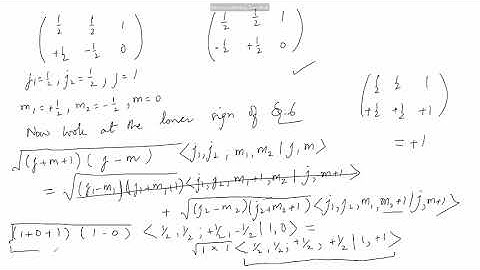 ( 1/2 1/2 1 ) ( 1/2 1/2 1 )
( +1/2 -1/2 0 ) ( -1/2 +1/2 0 )
j₁=1/2, j₂=1/2, j=1
m₁=+1/2, m₂=-1/2, m=0
Now look at the lower sign of Eq.6
( 1/2 1/2 1 )
( +1/2 +1/2 +1 )
= +1
√(j+m+1)(j-m) <j₁,j₂, m₁,m₂|j,m>
= √(j₁-m₁)(j₁+m₁+1) <j₁,j₂,m₁+1,m₂|j,m+1>
+ √(j₂-m₂)(j₂+m₂+1) <j₁,j₂,m₁,m₂+1|j,m+1>
√(1+0+1)(1-0) <1/2,1/2;+1/2,-1/2|1,0> =
√1×1 <1/2,1/2;+1/2,+1/2|1,+1>